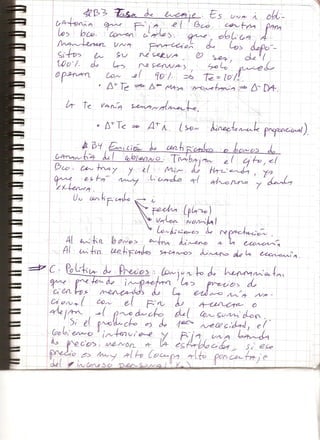 B3 Tasa de encaje. Es una i obli-
gatoria que Fija el Bco. central para
los bco. comerciales. que, obliga a
mantener una proporción de los depó-
sitos en su reserva. O sea, del
100% de las reservas, solo puede
operar con el 90% ⇒ Te = 10%
• Δ+Te Δ- masa monetaria ⇒ Δ- DA.
La Te varía semanalmente.
• Δ+Te ⇒ Δ+ i. (son directamente proporcional).
B4 Emisión de certificados o bonos de
garantía del gobierno: Trabajan el gto, el
Bco. central y el Min de Hacienda, ya
que está muy ligado al ahorro y deuda
externa.
Un certificado
i
Fecha (plazo)
Valor Nominal
Condiciones de
Al emitir bonos entra dinero a la economía
Al emitir certificados sacamos dinero de la economía.
⇒ C. Política de Precios: Conjunto de herramientas
que pretende impactar los precios de
ciertos mercados de la economía na-
cional con el Fin de acercar o
alejar al producto del consumidor.
Si el producto es de 1era necesidad, el
Gobierno interviene y Fija una banda
de precios, menor a la establecida, si ese
precio es muy alto (ocupa alto porcentaje
del ingreso